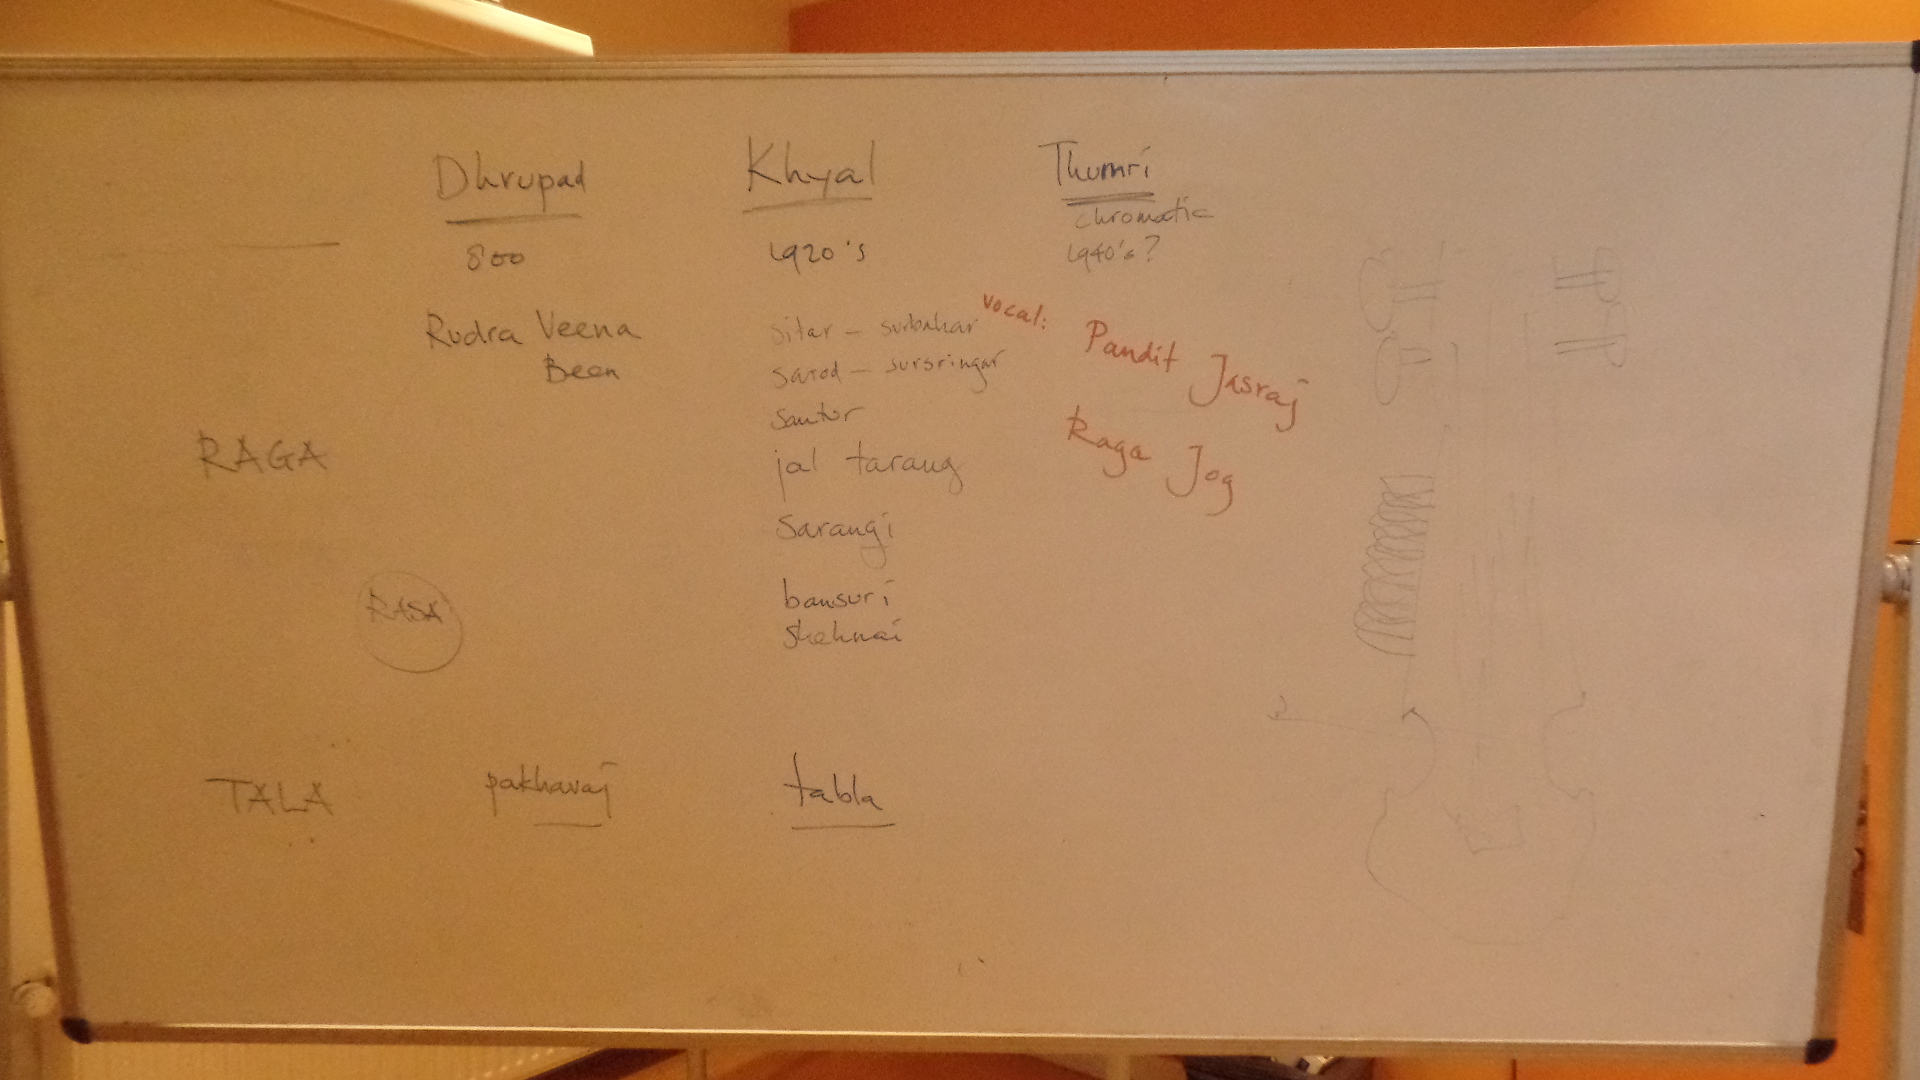 Dhrupad Khyal Thumri
chromatic
800 1920's 1940's?
Rudra Veena
Been
sitar – surbahar
sarod – sursringar
santur
jal tarang
sarangi
bansuri
shehnai
vocal:
Pandit Jasraj
Raga Jog
RAGA
RASA
TALA pakhavaj tabla